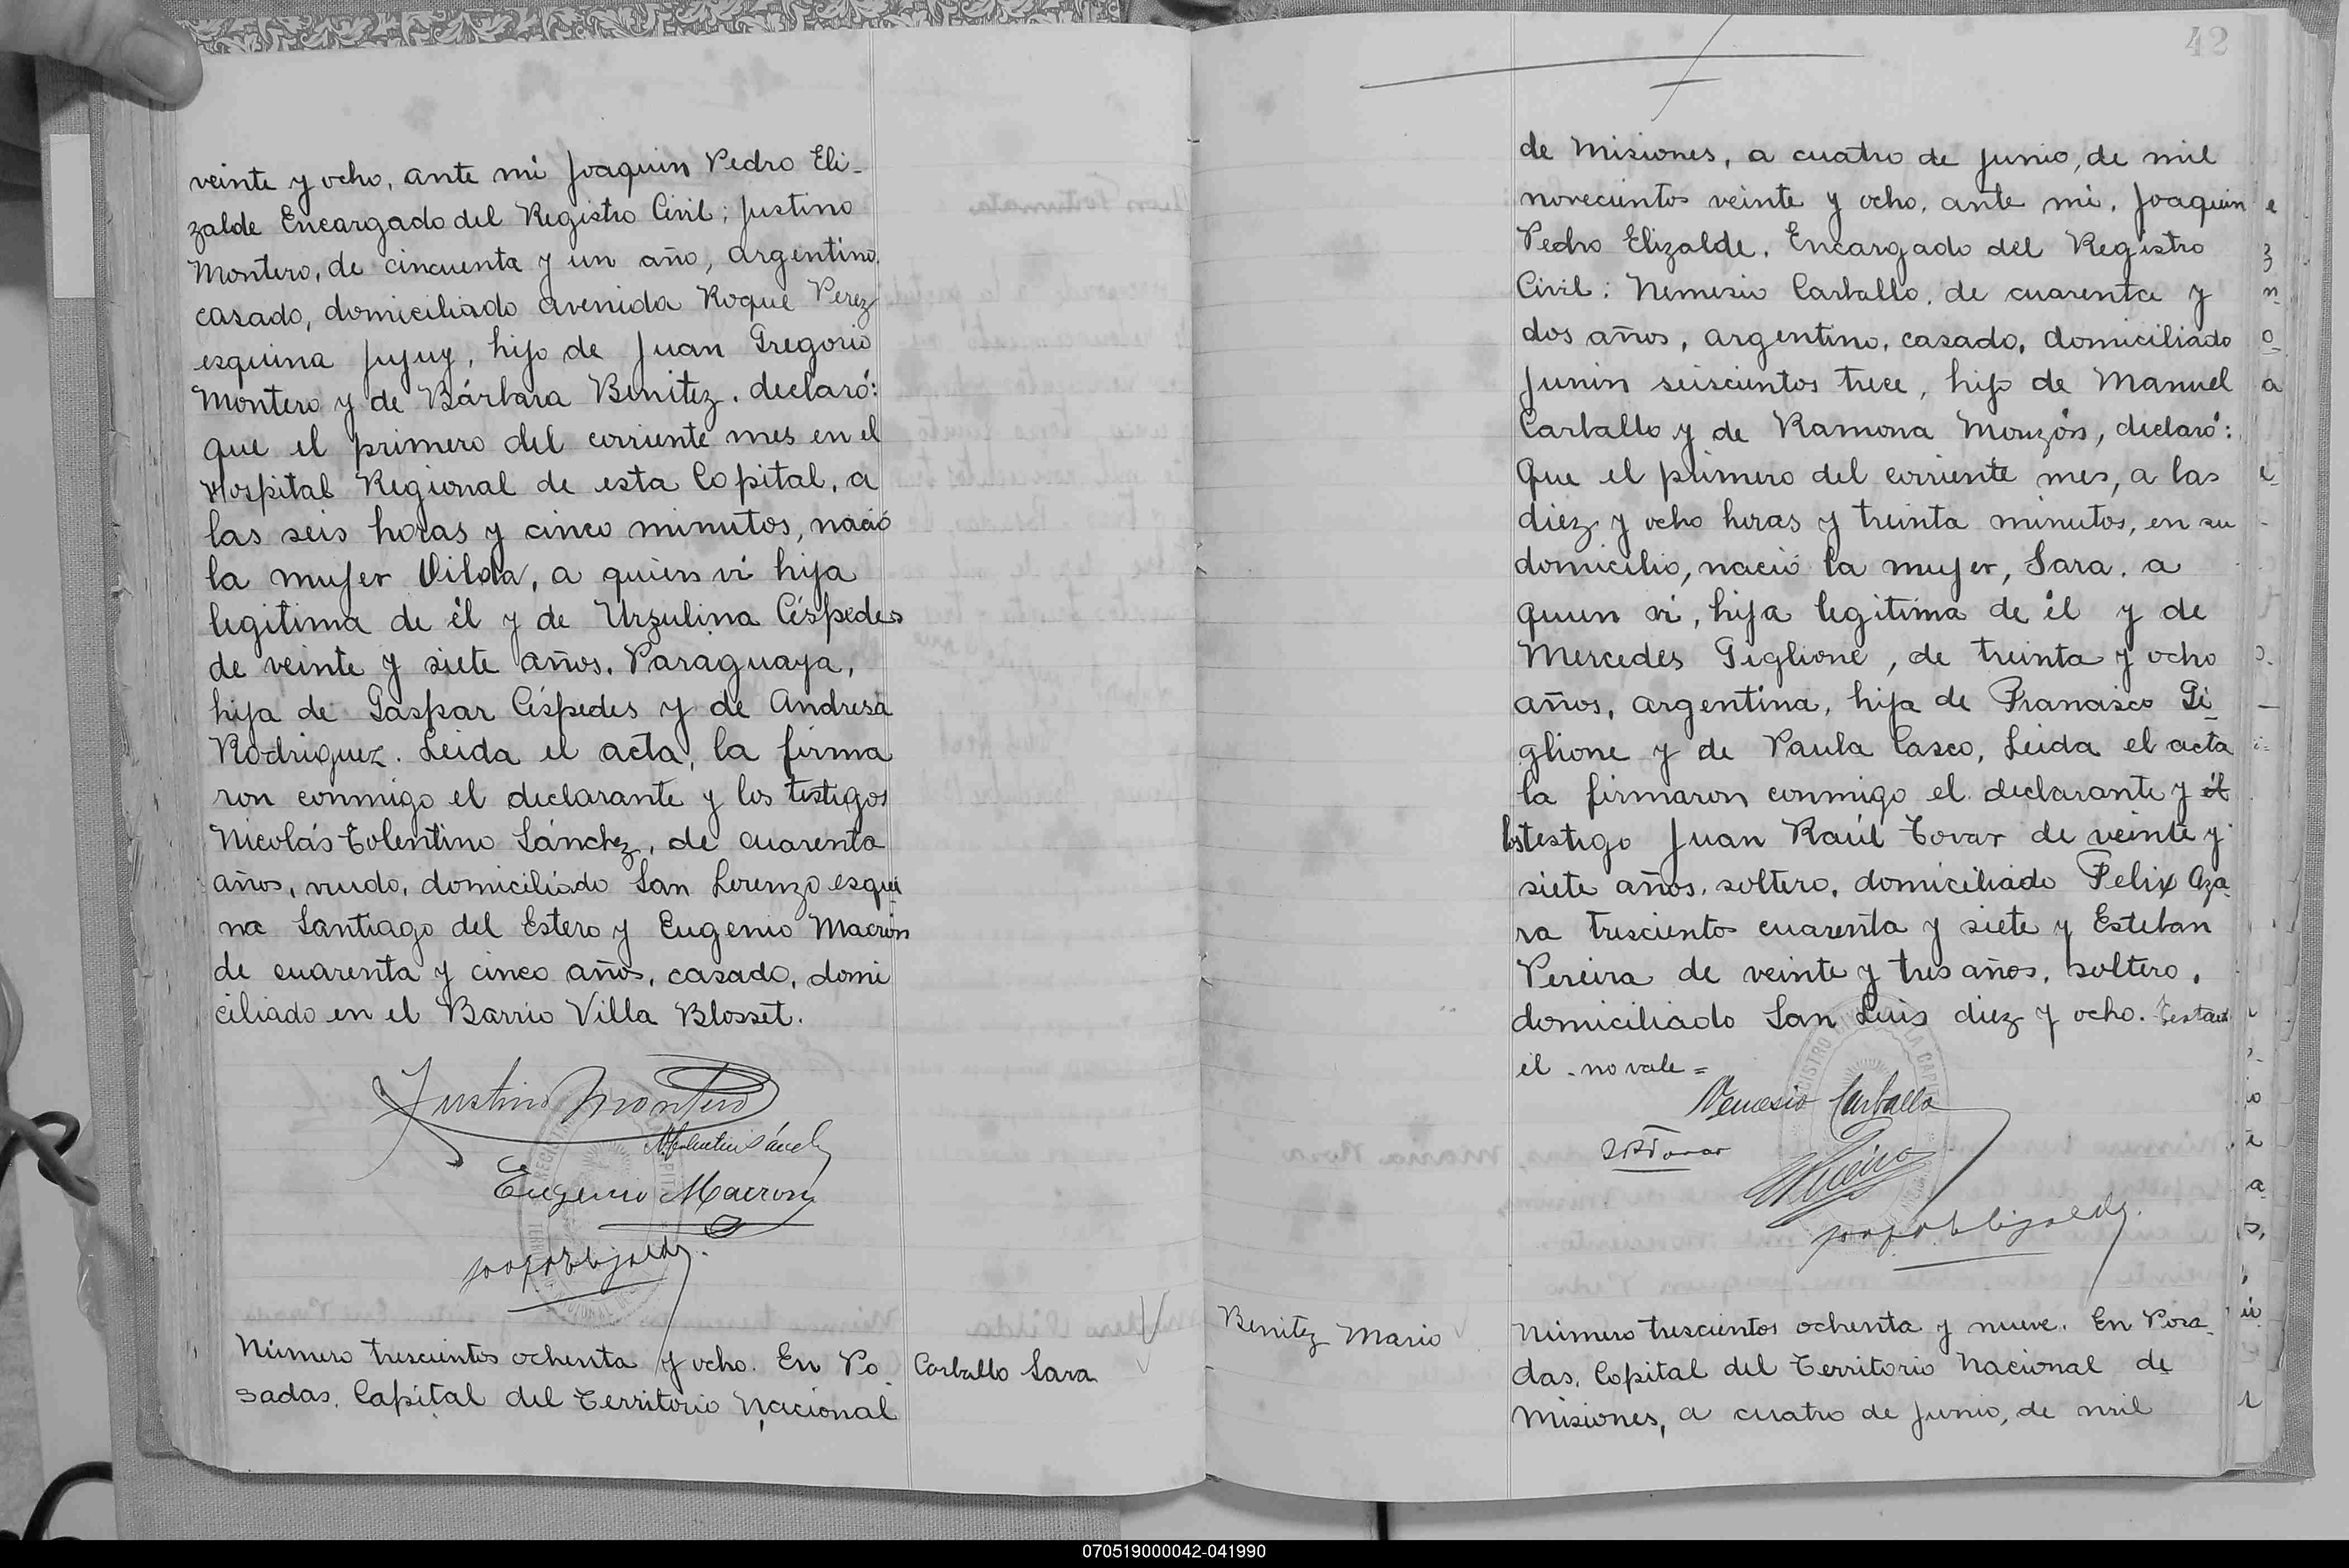 veinte y ocho, ante mi Joaquin Pedro Eli-
zalde Encargado del Registro Civil; Justino
Montero, de cincuenta y un año, argentino,
casado, domiciliado avenida Roque Perez
esquina Jujuy, hijo de Juan Gregorio
Montero y de Bárbara Benitez, declaró:
que el primero del corriente mes en el
Hospital Regional de esta Capital, a
las seis horas y cinco minutos, nació
la mujer Vilda, a quien vi hija
legitima de él y de Urzulina Céspedes
de veinte y siete años, Paraguaya,
hija de Gaspar Céspedes y de Andresa
Rodriguez. Leida el acta, la firma
ron conmigo el declarante y los testigos
Nicolás Tolentino Sánchez, de cuarenta
años, viudo, domiciliado San Lorenzo esqui
na Santiago del Estero y Eugenio Macrón
de cuarenta y cinco años, casado, domi
ciliado en el Barrio Villa Blosset.
Justino Montero
Eugenio Macron
Número trescientos ochenta y ocho. En Po-
sadas, Capital del Territorio Nacional
Carballo Sara
42
de Misiones, a cuatro de Junio, de mil
novecientos veinte y ocho, ante mi, Joaquin
Pedro Elizalde, Encargado del Registro
Civil: Nemesio Carballo, de cuarenta y
dos años, argentino, casado, domiciliado
Junin seiscientos trece, hijo de Manuel
Carballo y de Ramona Monzón, declaró:
Que el primero del corriente mes, a las
diez y ocho horas y treinta minutos, en su
domicilio, nació la mujer, Sara, a
quien vi, hija legitima de él y de
Mercedes Giglione, de treinta y ocho
años, argentina, hija de Francisco Gi-
glione y de Paula Casco, Leida el acta
la firmaron conmigo el declarante y él
los testigo Juan Raúl Tovar de veinte y
siete años, soltero, domiciliado Felix Aza-
ra trescientos cuarenta y siete y Esteban
Pereira de veinte y tres años, soltero,
domiciliado San Luis diez y ocho. Testado
él - no vale =
Nemesio Carballo
JRTovar
Benitez Mario
Número trescientos ochenta y nueve. En Posa-
das, Capital del Territorio Nacional de
Misiones, a cuatro de Junio, de mil
070519000042-041990